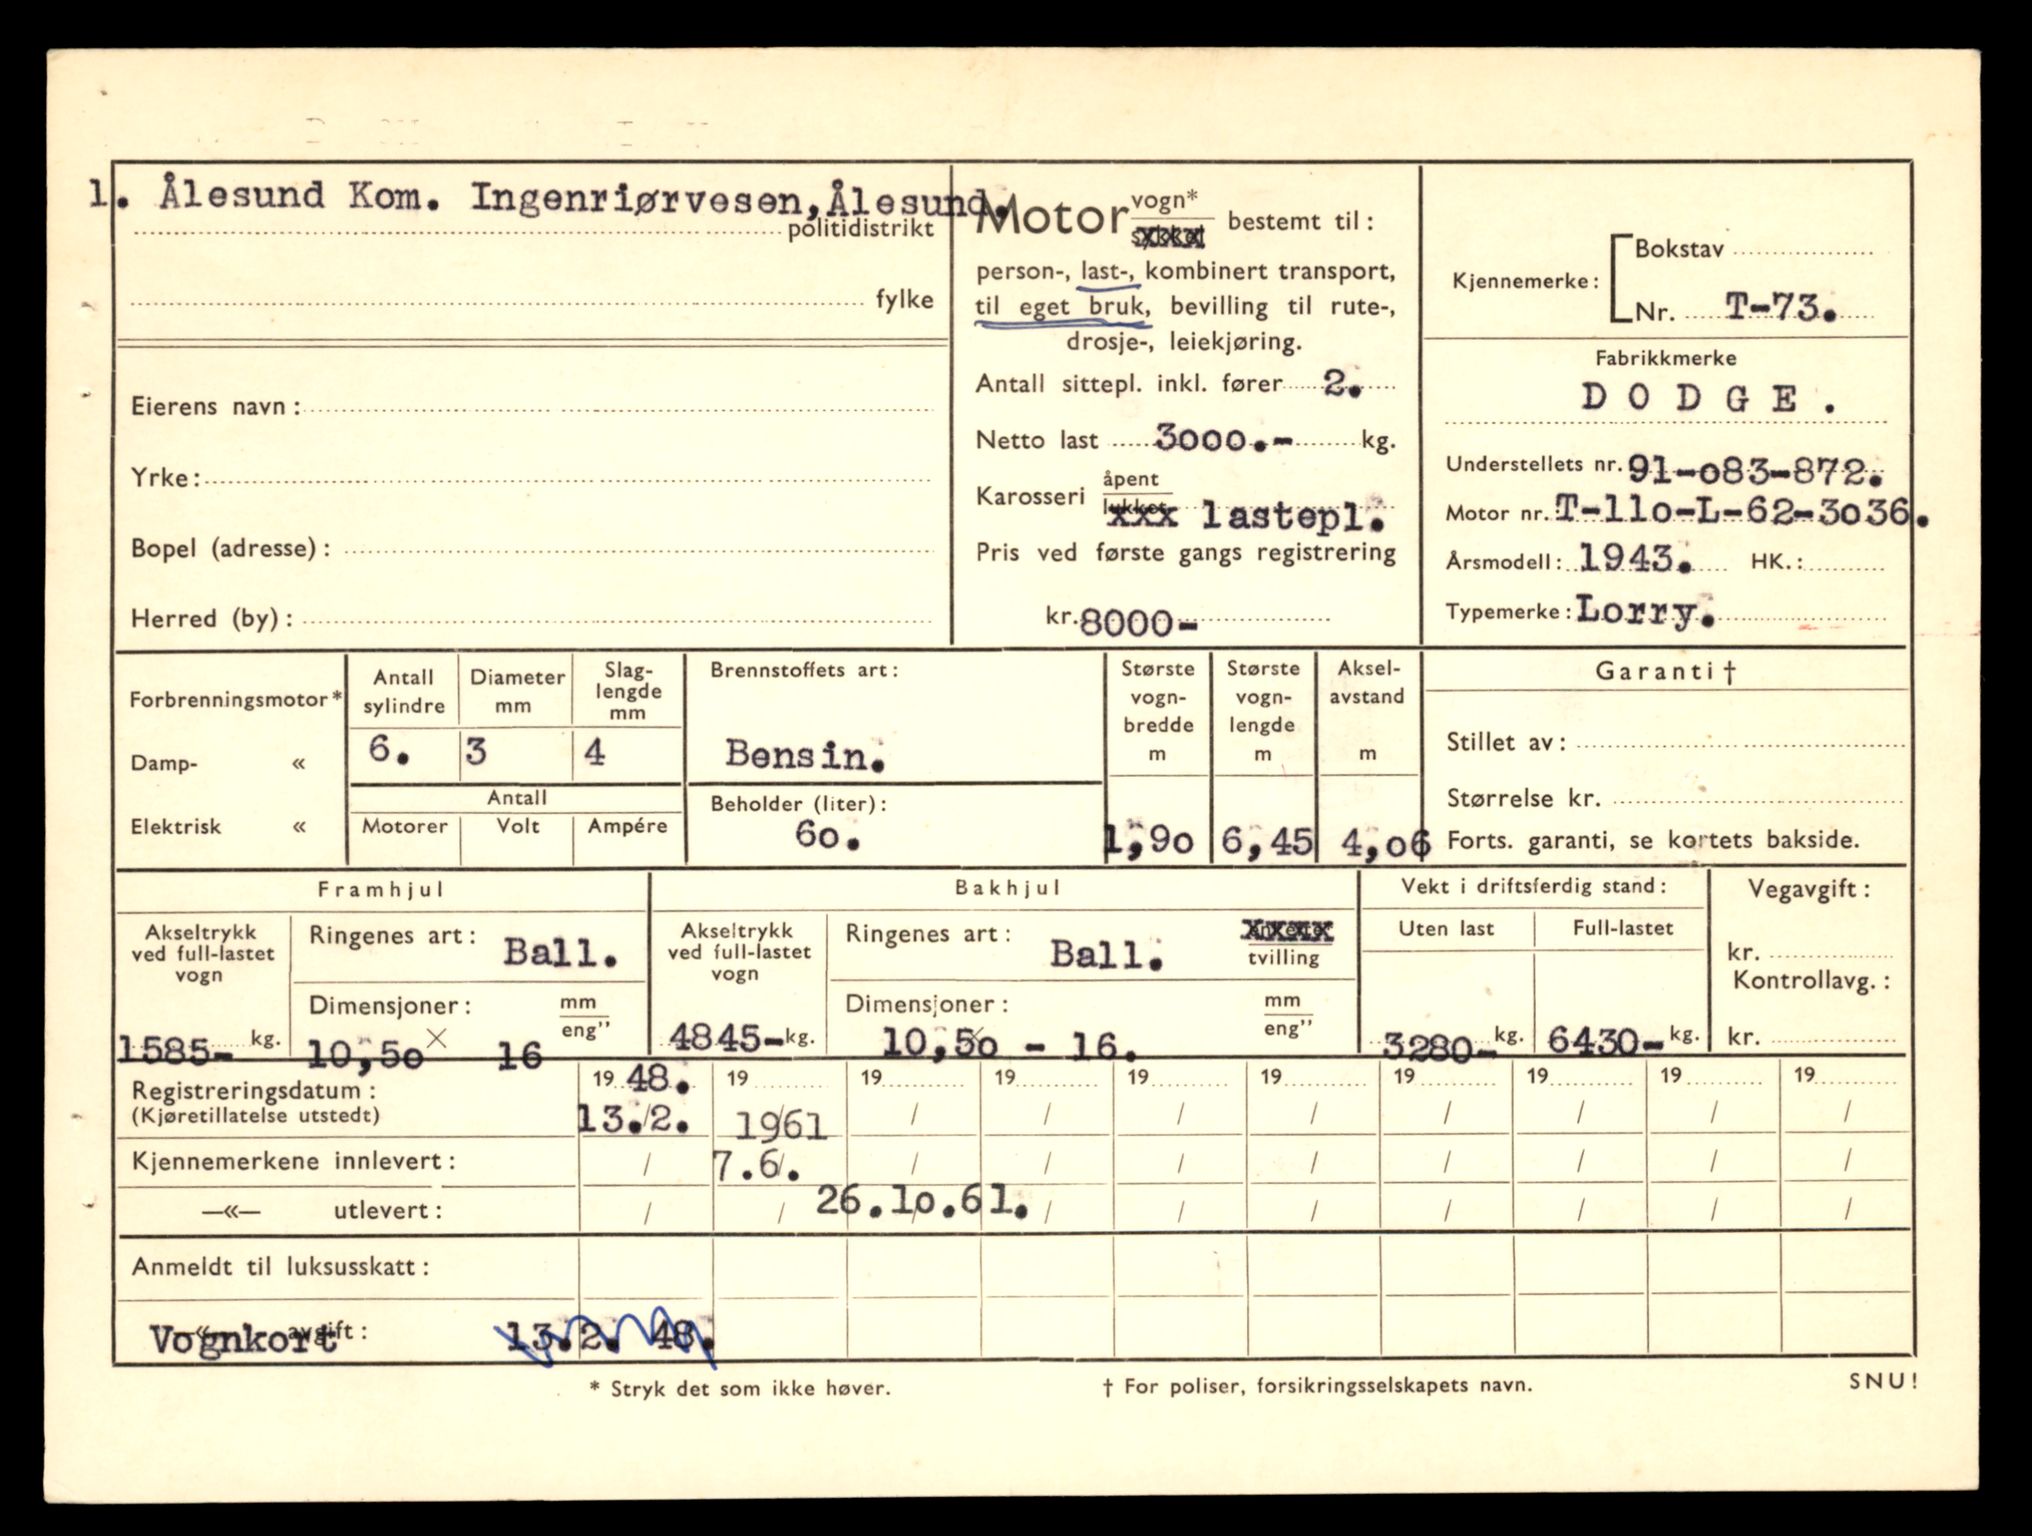 1. Ålesund Kom. Ingenriørvesen, Ålesund.
politidistrikt
fylke
Eierens navn:
Yrke:
Bopel (adresse):
Herred (by):
Motor vogn*
bestemt til:
person-, last-, kombinert transport,
til eget bruk, bevilling til rute-,
drosje-, leiekjøring.
Antall sittepl. inkl. fører 2.
Netto last 3000.- kg.
Karosseri åpent
lukket xxx lastepl.
Pris ved første gangs registrering
kr. 8000-
Kjennemerke: Bokstav
Nr. T-73.
Fabrikkmerke
DODGE.
Understellets nr. 91-o83-872.
Motor nr. T-11o-L-62-3o36.
Årsmodell: 1943. HK.:
Typemerke: Lorry.
Forbrenningsmotor*
Damp- «
Elektrisk «
Antall sylindre
6.
Diameter mm
3
Slag-
lengde
mm
4
Antall
Motorer Volt Ampére
Brennstoffets art:
Bensin.
Beholder (liter):
6o.
Største
vogn-
bredde
m
1,9o
Største
vogn-
lengde
m
6,45
Aksel-
avstand
m
4,o6
Garanti †
Stillet av:
Størrelse kr.
Forts. garanti, se kortets bakside.
Framhjul
Akseltrykk
ved full-lastet
vogn
1585- kg.
Ringenes art: Ball.
Dimensjoner: mm
eng”
10,5o × 16
Bakhjul
Akseltrykk
ved full-lastet
vogn
4845- kg.
Ringenes art: Ball.
tvilling
Dimensjoner: mm
eng”
10,5o - 16.
Vekt i driftsferdig stand:
Uten last Full-lastet
3280- kg. 6430- kg.
Vegavgift:
kr.
Kontrollavg.:
kr.
Registreringsdatum: 19 48. 19 19 19 19 19 19 19 19 19
(Kjøretillatelse utstedt) 13./2. 1961 / / / / / / / /
Kjennemerkene innlevert: / 7.6/. / / / / / / / /
—«— utlevert: / / 26.1o.61. / / / / / / /
Anmeldt til luksusskatt:
—«— avgift:
Vognkort 13.2. 48.
* Stryk det som ikke høver.
† For poliser, forsikringsselskapets navn.
SNU!